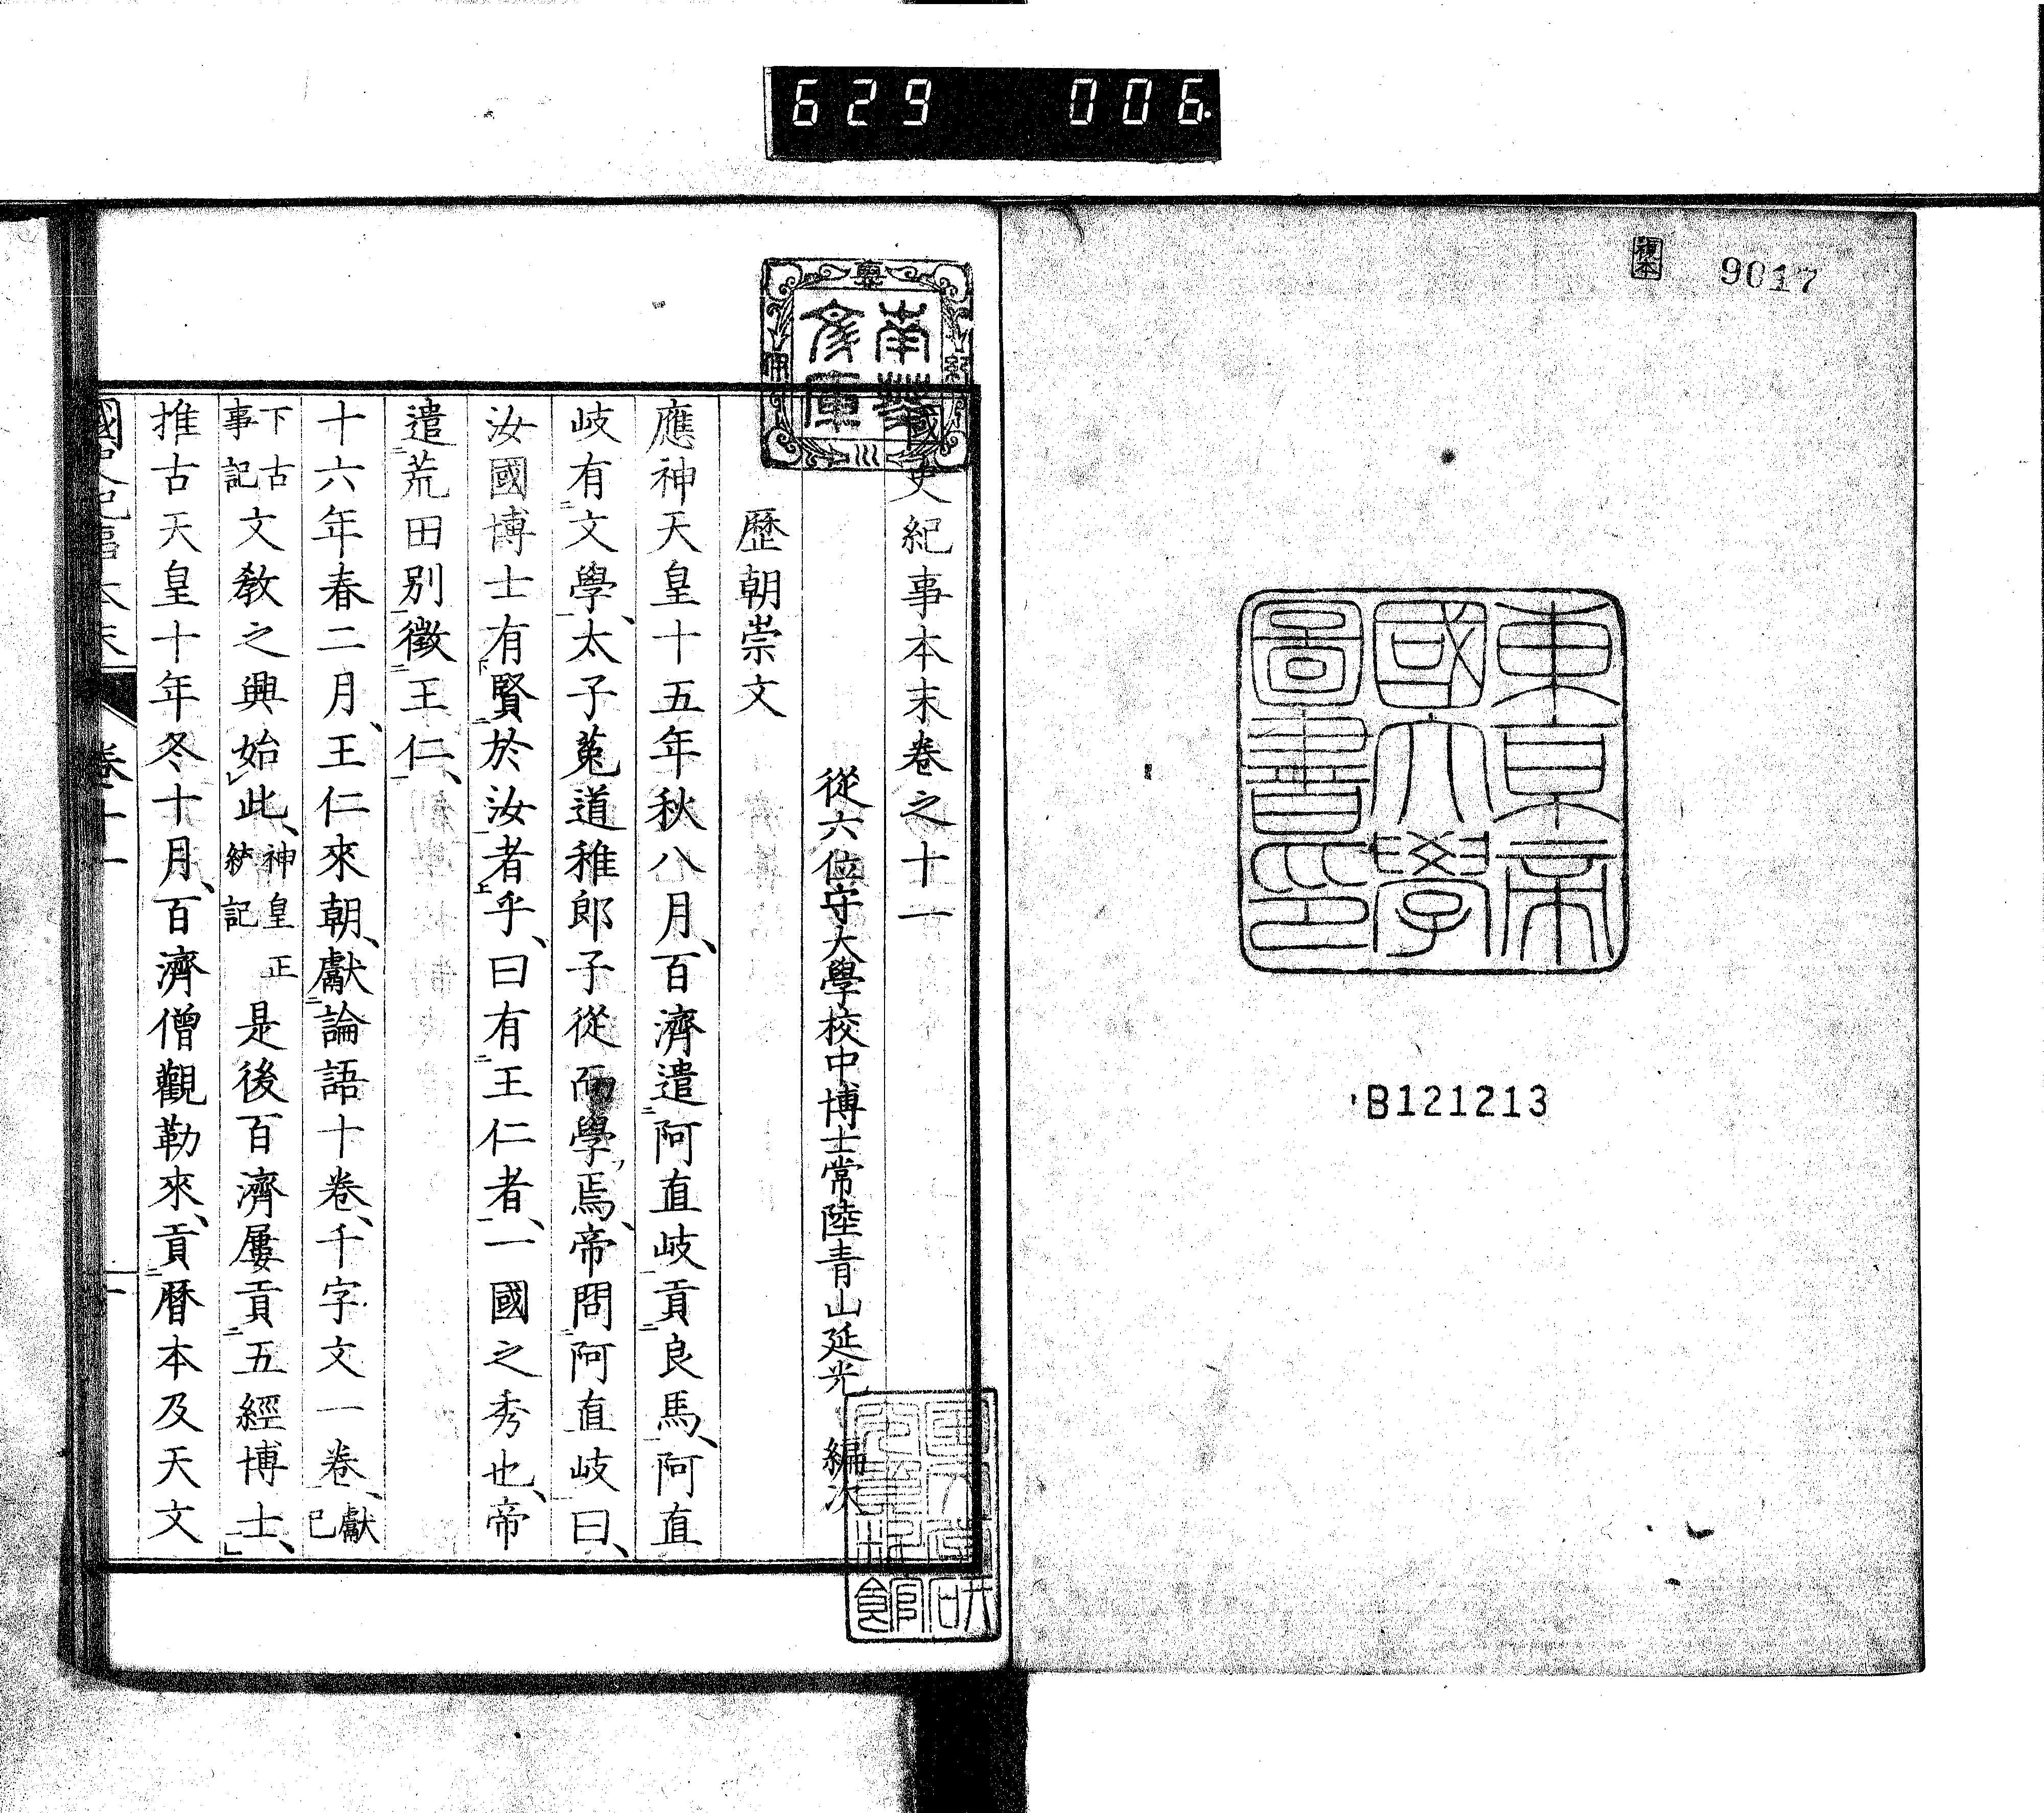 629 006.
複本
9017
東京帝
國大學
圖書印
B121213
南葵
文庫
國史紀事本末卷之十一
從六位守大學校中博士常陸青山延光 編次
歷朝崇文
應神天皇十五年秋八月、百濟遣二阿直岐一貢二良馬一、阿直
岐有二文學一、太子菟道稚郎子從而學焉、帝問二阿直岐一曰、
汝國博士有下賢二於汝一者上乎、曰有二王仁者一、一國之秀也、帝
遣二荒田別一徵二王仁一、
十六年春二月、王仁來朝、獻二論語十卷、千字文一卷一、獻
已
下古
事記
文教之興始」此、
神皇正
統記
是後百濟屢貢二五經博士一、」
推古天皇十年冬十月、百濟僧觀勒來、貢二曆本及天文
國史紀事本末 卷十一 一